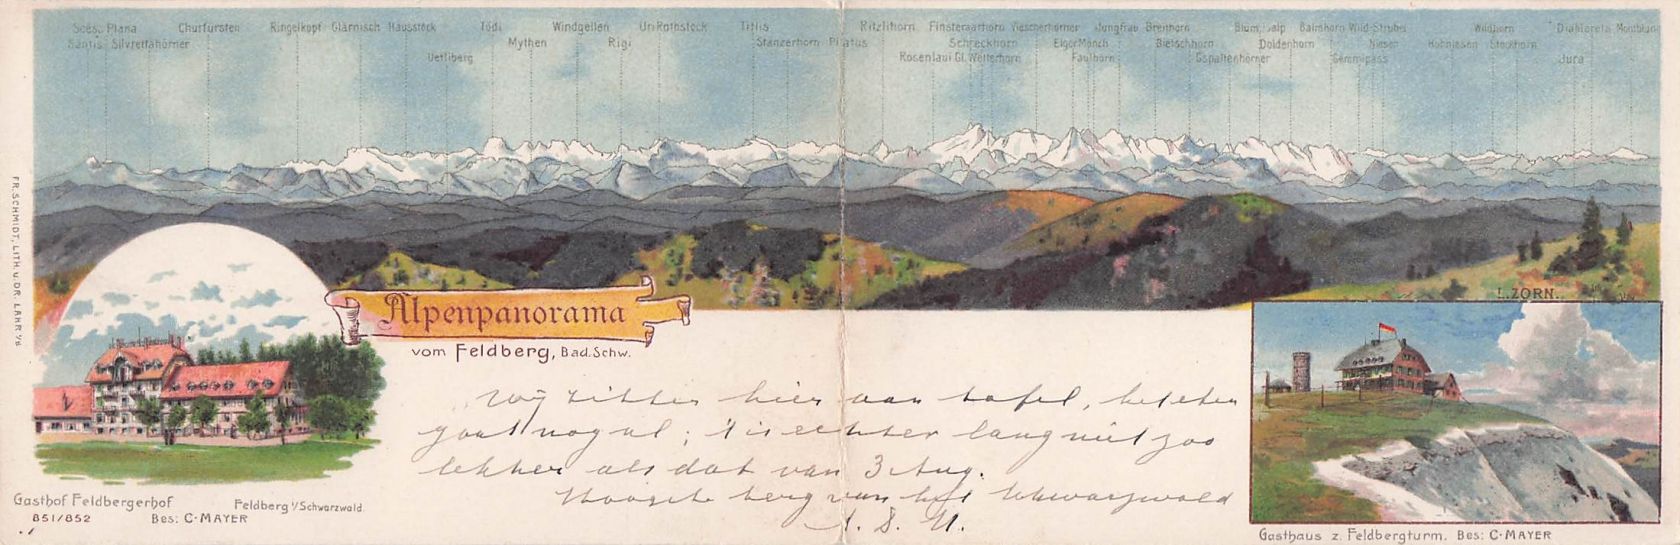 Sces. Plana Churfürsten Ringelkopf Glärnisch Hausstock Tödi Windgellen Uri-Rothstock Titlis Ritzlihorn Finsteraarhorn Viescherhörner Jungfrau Breithorn Blüml. alp Balmhorn Wild-Strubel Wildhorn Diablerets Montblanc
Säntis Silvrettahörner Mythen Rigi Stanzerhorn Pilatus Schreckhorn Eiger Mönch Bietschhorn Doldenhorn Niesen Stockhorn
Uetliberg Rosenlaui Gl. Wetterhorn Faulhorn Gspaltenhörner Gemmipass Jura
FR. SCHMIDT, LITH. u. DR. LAHR i/B
L. ZORN.
Alpenpanorama
vom Feldberg, Bad. Schw.
Wij zitten hier aan tafel,
gaat nogal; 't is echter lang niet zoo
lekker als dat van 3 Aug.
Hoogste berg van het Schwarzwald
Gasthof Feldbergerhof Feldberg i/Schwarzwald.
851/852 Bes: C. MAYER
Gasthaus z. Feldbergturm. Bes: C. MAYER